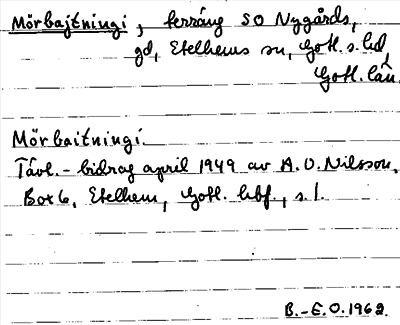 Mörbajtningi, terräng SO Nygårds,
gd, Etelhems sn, Gotl. s. hd,
Gotl. län.
Mörbaitningi.
Tävl.-bidrag april 1949 av A. O. Nilsson,
Box 6, Etelhem, Gotl. hbf., s. 1.
B.-E. O. 1962.